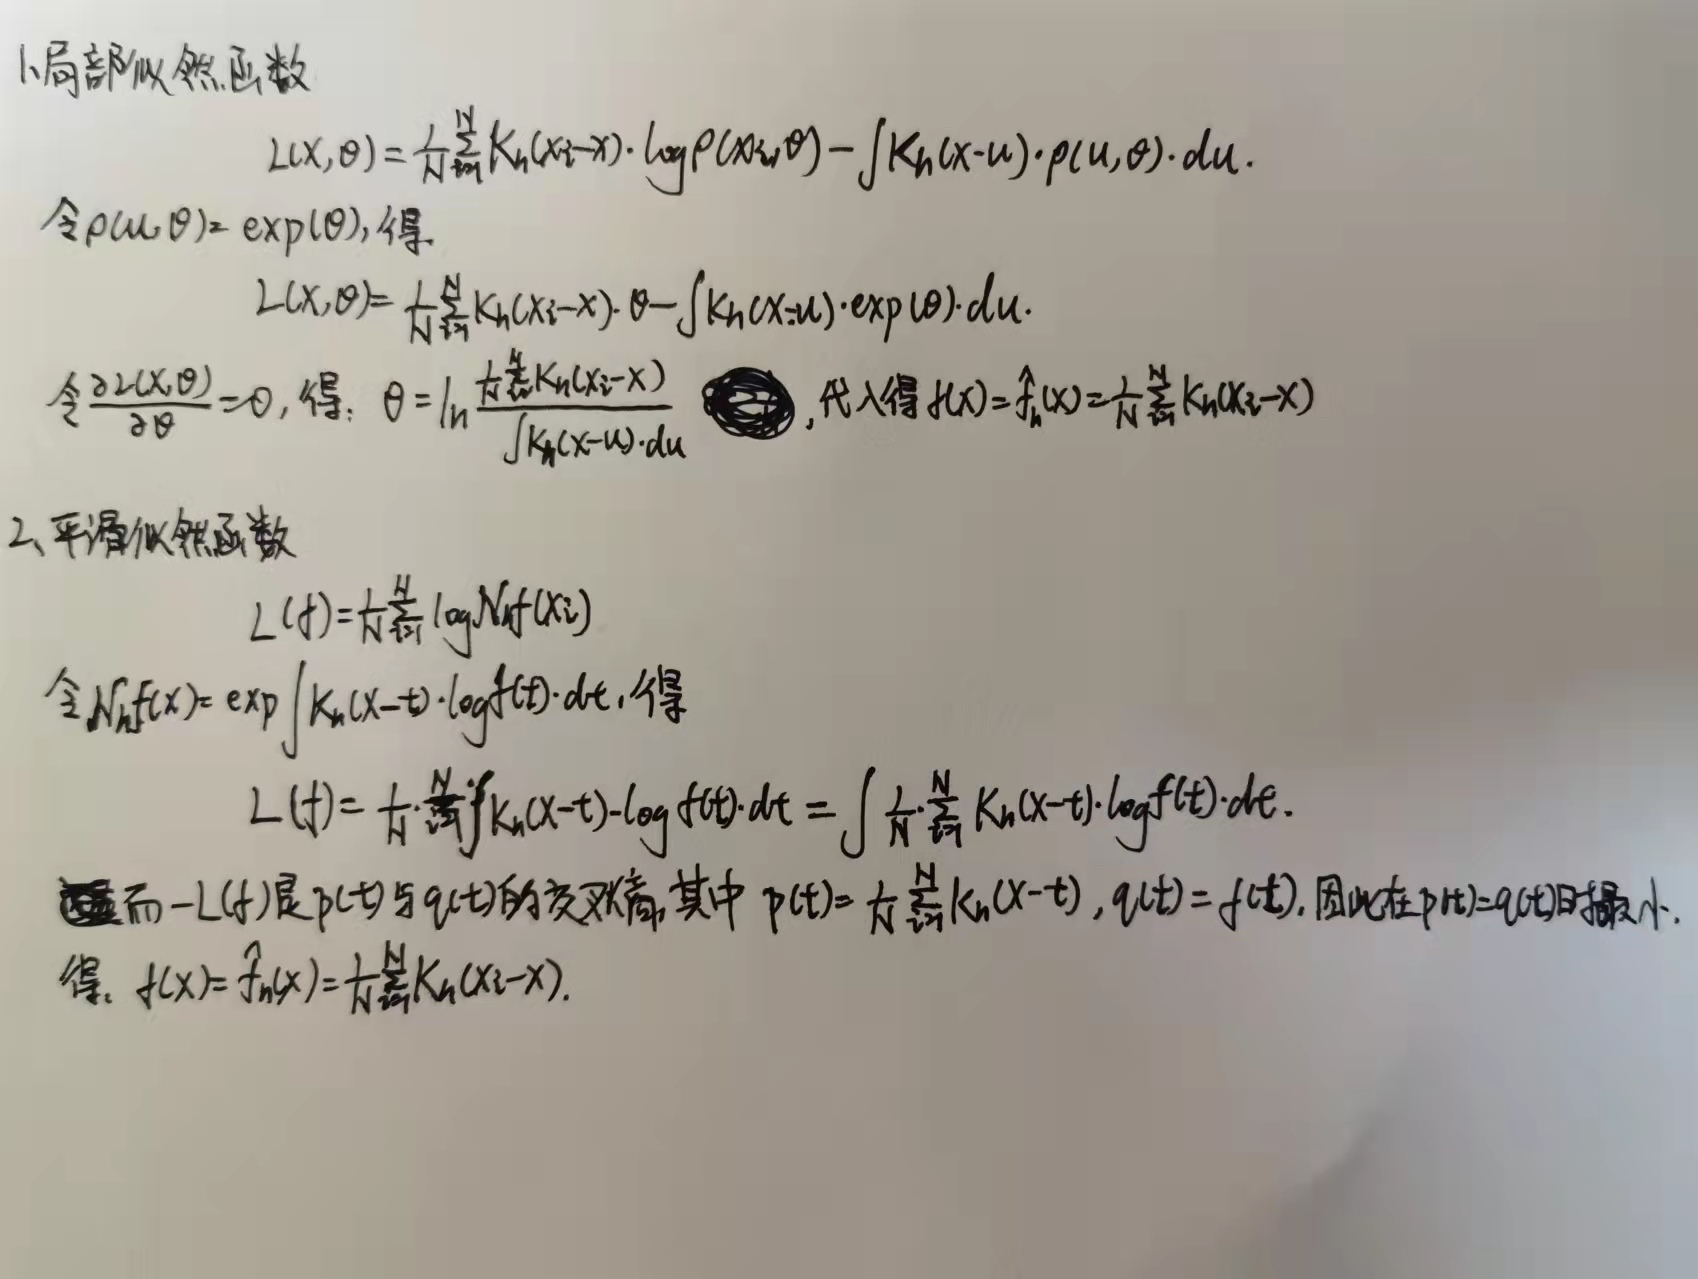 1、局部似然函数
L(X,θ)=1/N ∑_{i=1}^{N} K_h(x_i-x)·log ρ(x_i,θ)-∫K_h(x-u)·ρ(u,θ)·du.
令ρ(u,θ)=exp(θ),得
L(X,θ)=1/N ∑_{i=1}^{N} K_h(x_i-x)·θ-∫K_h(x-u)·exp(θ)·du.
令 ∂L(X,θ)/∂θ=0,得: θ=ln (1/N ∑_{i=1}^{N} K_h(x_i-x))/(∫K_h(x-u)·du) ,代入得 f(x)=f̂_h(x)=1/N ∑_{i=1}^{N} K_h(x_i-x)
2、平滑似然函数
L(f)=1/N ∑_{i=1}^{N} log N_h f(x_i)
令 N_h f(x)=exp∫K_h(x-t)·log f(t)·dt,得
L(f)=1/N·∑_{i=1}^{N}∫K_h(x-t)-log f(t)·dt=∫1/N·∑_{i=1}^{N} K_h(x-t)·log f(t)·dt.
而-L(f)是p(t)与q(t)的交叉熵,其中 p(t)=1/N ∑_{i=1}^{N} K_h(x-t),q(t)=f(t).因此在p(t)=q(t)时最小.
得: f(x)=f̂_h(x)=1/N ∑_{i=1}^{N} K_h(x_i-x).